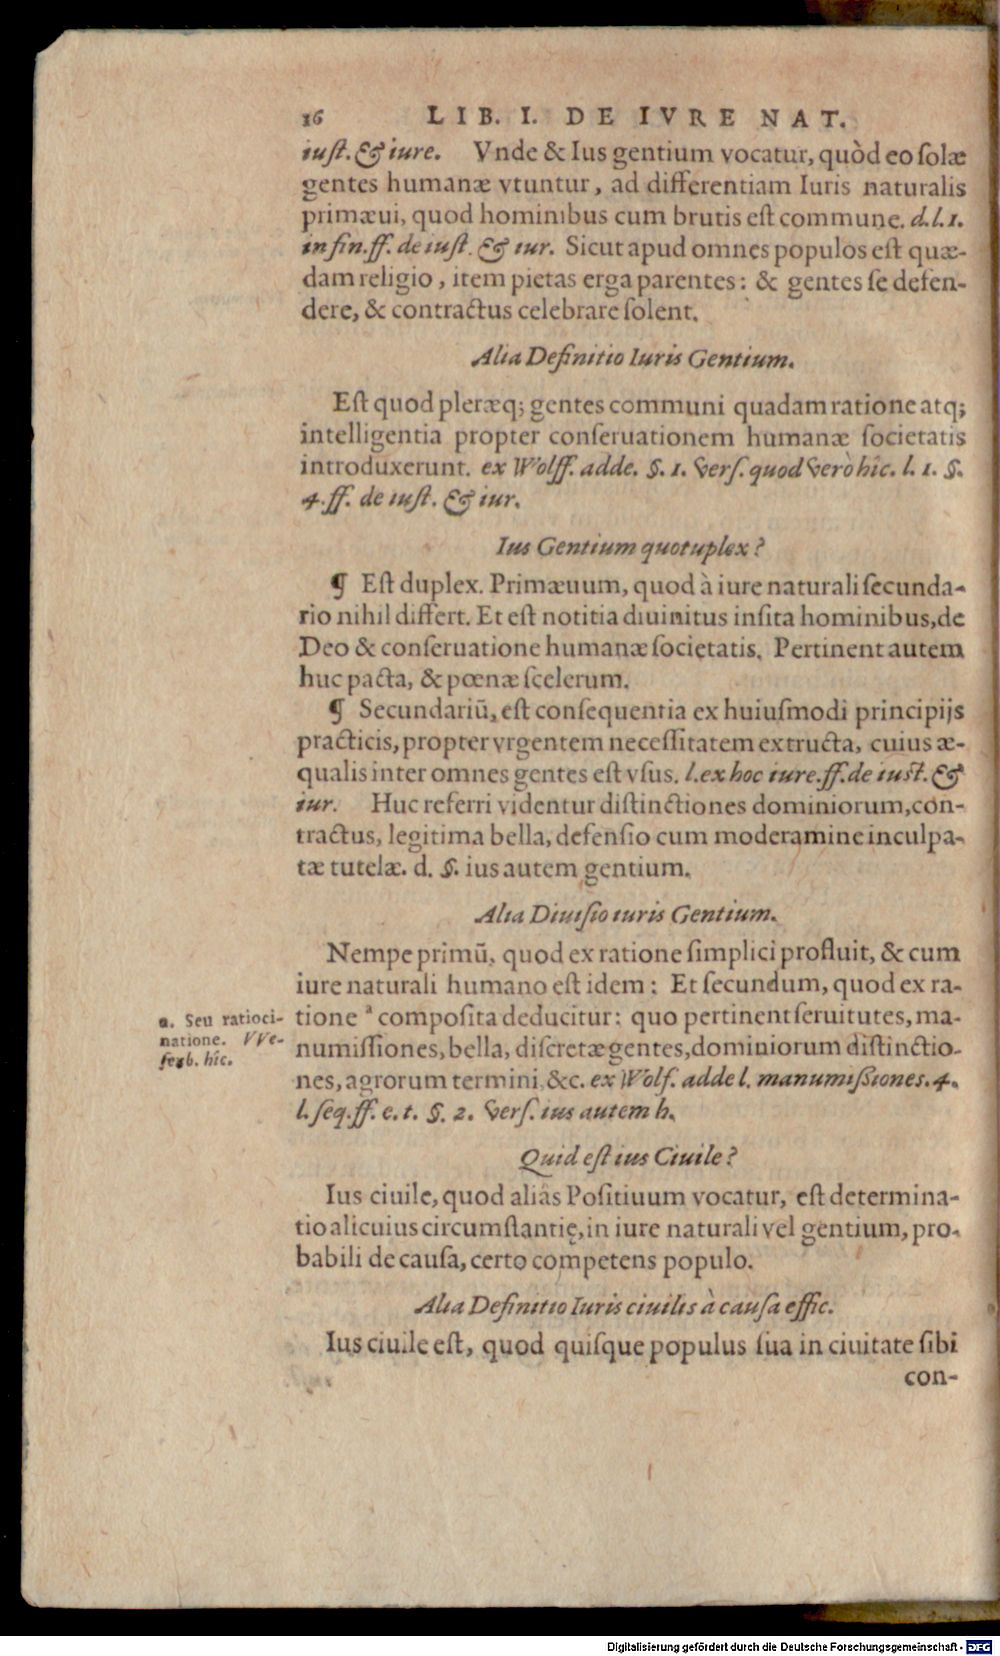 16 LIB. I. DE IVRE NAT.
iuſt. & iure. Vnde & Ius gentium vocatur, quòd eo ſolæ
gentes humanæ vtuntur, ad differentiam Iuris naturalis
primæui, quod hominibus cum brutis eſt commune. d. l. 1.
in fin. ff. de iuſt. & iur. Sicut apud omnes populos eſt quæ-
dam religio, item pietas erga parentes: & gentes ſe defen-
dere, & contractus celebrare ſolent.
Alia Definitio Iuris Gentium.
Eſt quod pleræq; gentes communi quadam ratione atq;
intelligentia propter conſeruationem humanæ ſocietatis
introduxerunt. ex Wolff. adde. §. 1. verſ. quod verò hîc. l. 1. §.
4. ff. de iuſt. & iur.
Ius Gentium quotuplex?
¶ Eſt duplex. Primæuum, quod à iure naturali ſecunda-
rio nihil differt. Et eſt notitia diuinitus inſita hominibus, de
Deo & conſeruatione humanæ ſocietatis. Pertinent autem
huc pacta, & pœnæ ſcelerum.
¶ Secundariũ, eſt conſequentia ex huiuſmodi principijs
practicis, propter vrgentem neceſſitatem extructa, cuius æ-
qualis inter omnes gentes eſt vſus. l. ex hoc iure. ff. de iuſt. &
iur. Huc referri videntur diſtinctiones dominiorum, con-
tractus, legitima bella, defenſio cum moderamine inculpa-
tæ tutelæ. d. §. ius autem gentium.
Alia Diuiſio iuris Gentium.
Nempe primũ, quod ex ratione ſimplici profluit, & cum
iure naturali humano eſt idem: Et ſecundum, quod ex ra-
tione ª compoſita deducitur: quo pertinent ſeruitutes, ma-
numiſſiones, bella, diſcretæ gentes, dominiorum diſtinctio-
nes, agrorum termini, &c. ex Wolf. adde l. manumißiones. 4.
l. ſeq. ff. e. t. §. 2. verſ. ius autem h.
a. Seu ratioci-
natione. VVe-
ſenb. hîc.
Quid eſt ius Ciuile?
Ius ciuile, quod aliâs Poſitiuum vocatur, eſt determina-
tio alicuius circumſtantię, in iure naturali vel gentium, pro-
babili de cauſa, certo competens populo.
Alia Definitio Iuris ciuilis à cauſa effic.
Ius ciuile eſt, quod quiſque populus ſua in ciuitate ſibi
con-
Digitalisierung gefördert durch die Deutsche Forschungsgemeinschaft - DFG